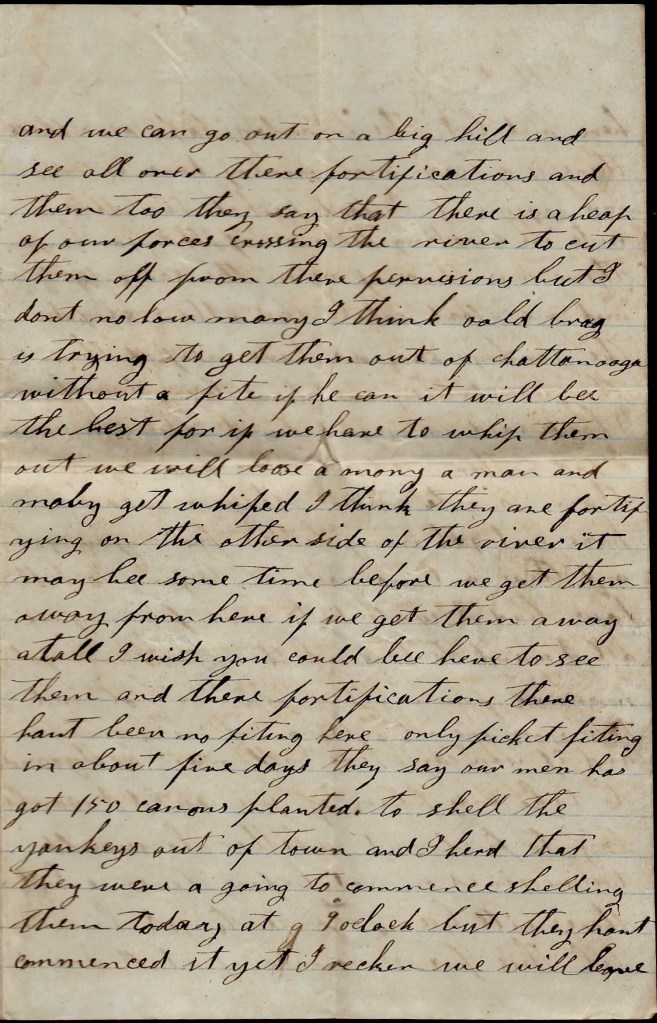 and we can go out on a big hill and
see all over there fortifications and
them too they say that there is a heap
of our forces crossing the river to cut
them off from there pervisions but I
dont no how many I think oald brag
is trying to get them out of chattanooga
without a fite if he can it will bee
the best for if we have to whip them
out we will loose a mony a man and
maby get whiped I think they are fortif
ying on the other side of the river it
may bee some time before we get them
away from here if we get them away
atall I wish you could bee here to see
them and there fortifications there
hant been no fiting here only picket fiting
in about five days they say our men has
got 150 canons planted. to shell the
yankeys out of town and I herd that
they were a going to commence shelling
them today at 9 oclock but they hant
commenced it yet I recken we will leave